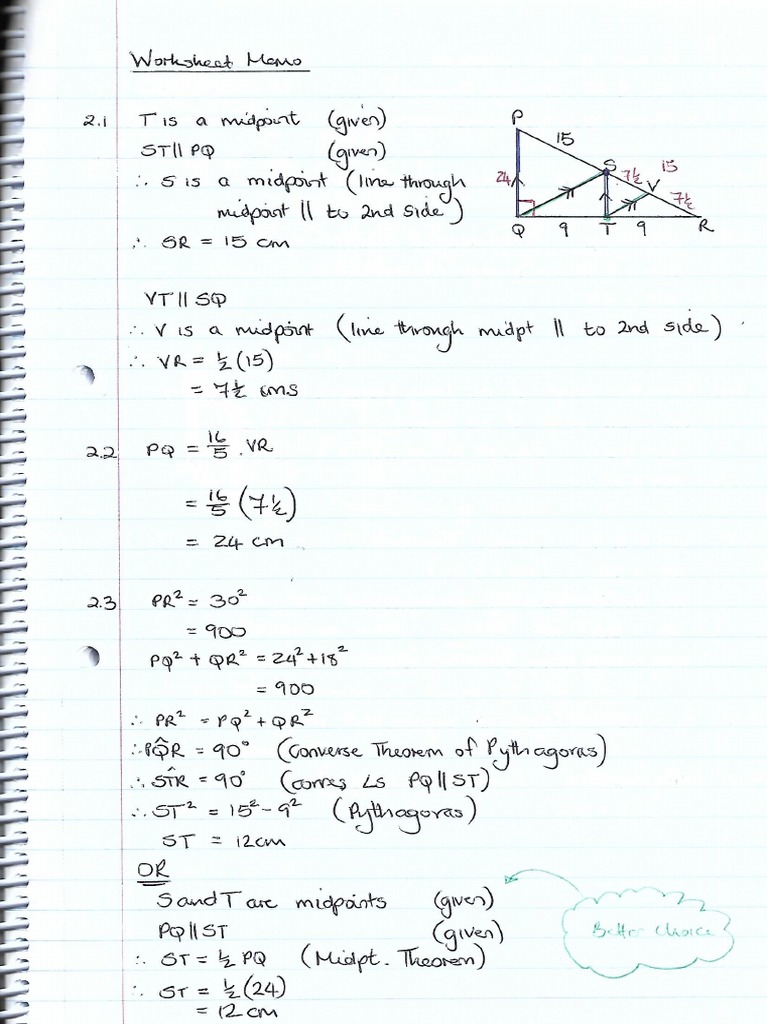 Worksheet Memo
2.1 T is a midpoint (given)
ST ∥ PQ (given)
∴ S is a midpoint (line through
midpoint ∥ to 2nd side)
∴ SR = 15 cm
P
15
S
15
24
7½
V
7½
Q
9
T
9
R
VT ∥ SQ
∴ V is a midpoint (line through midpt ∥ to 2nd side)
∴ VR = ½(15)
= 7½ cms
2.2 PQ = 16/5 . VR
= 16/5 (7½)
= 24 cm
2.3 PR² = 30²
= 900
PQ² + QR² = 24² + 18²
= 900
∴ PR² = PQ² + QR²
∴ PQ̂R = 90° (Converse Theorem of Pythagoras)
∴ ST̂R = 90° (corres ∠s PQ ∥ ST)
∴ ST² = 15² - 9² (Pythagoras)
ST = 12cm
OR
S and T are midpoints (given)
PQ ∥ ST (given)
Better choice
∴ ST = ½ PQ (Midpt. Theorem)
∴ ST = ½(24)
= 12 cm